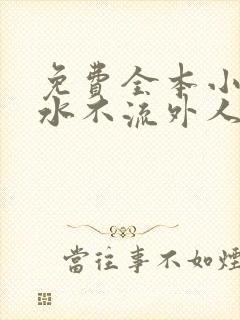 免費全本小
水不流外人
當往事不如煙